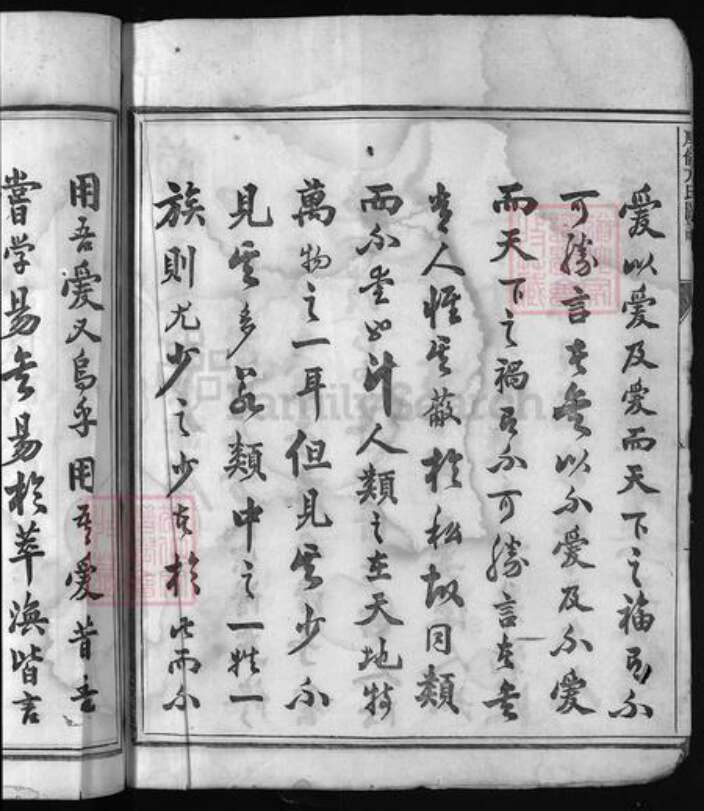 愛以愛及愛而天下之福有不
可勝言者無以不愛及不愛
而天下之禍有不可勝言者矣
人惟其蔽於私故同類
而不愛也計人類之在天地特
萬物之一耳但見其少不
見其多若類中之一姓一
族則尤少之少者於此而不
用吾愛又烏乎用吾愛昔吾
嘗学易矣易於萃渙皆言
FamilySearch